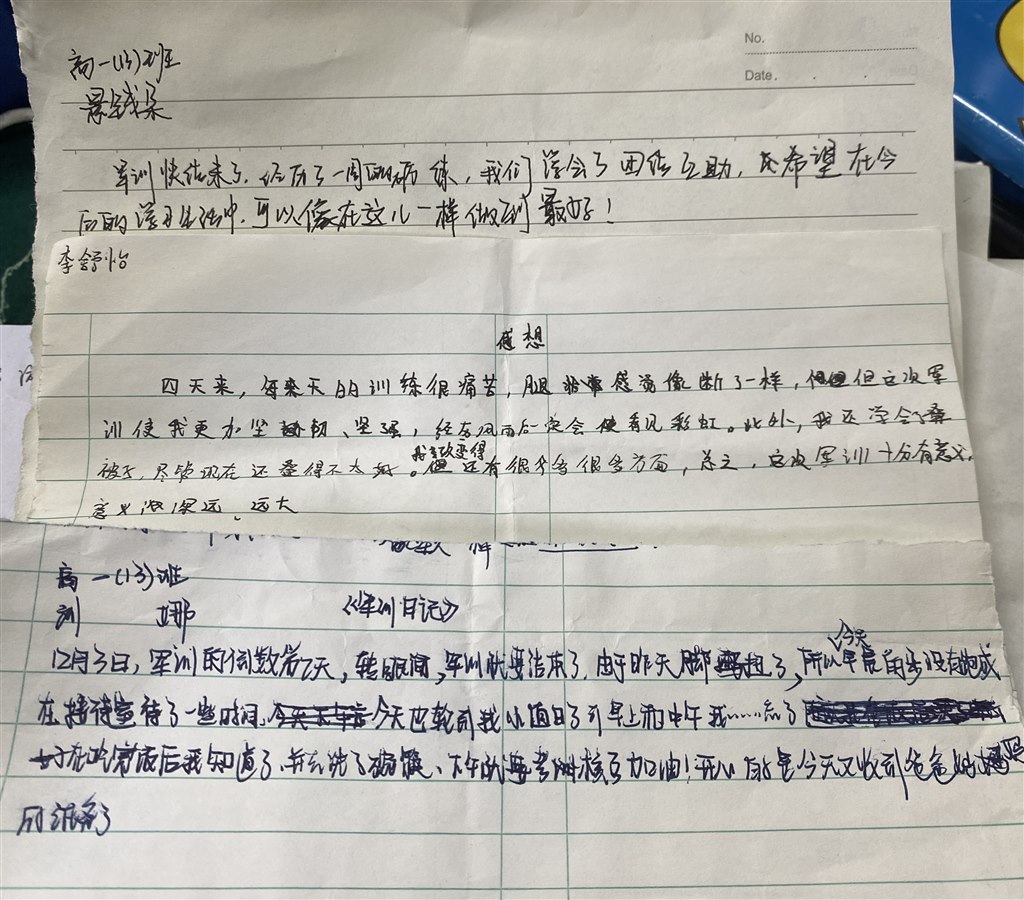 No.
Date.
高一(13)班
军训快结束了，经历了一周的磨练，我们学会了团结互助，还希望在今
后的学习生活中，可以像在这儿一样做到最好！
李舒怡
感想
四天来，每天的训练很痛苦，腿非常感觉像断了一样，但这次军
训使我更加坚韧、坚强，经历风雨后一定会看见彩虹。此外，我还学会了叠
被子，尽管现在还叠得不太好。我喜欢还有很多很多方面，总之，这次军训十分有意义，
意义深远、远大
高一(13)班
娜 《军训日记》
12月3日，军训的倒数第2天，转眼间，军训就要结束了，由于昨天脚扭了，所以今天早晨跑步没有跑成
在接待室待了一些时间，今天也轮到我小值日了可早上和中午我……忘了
在吃完饭后我知道了，下午的考核要加油！开心的是今天又收到爸爸妈妈